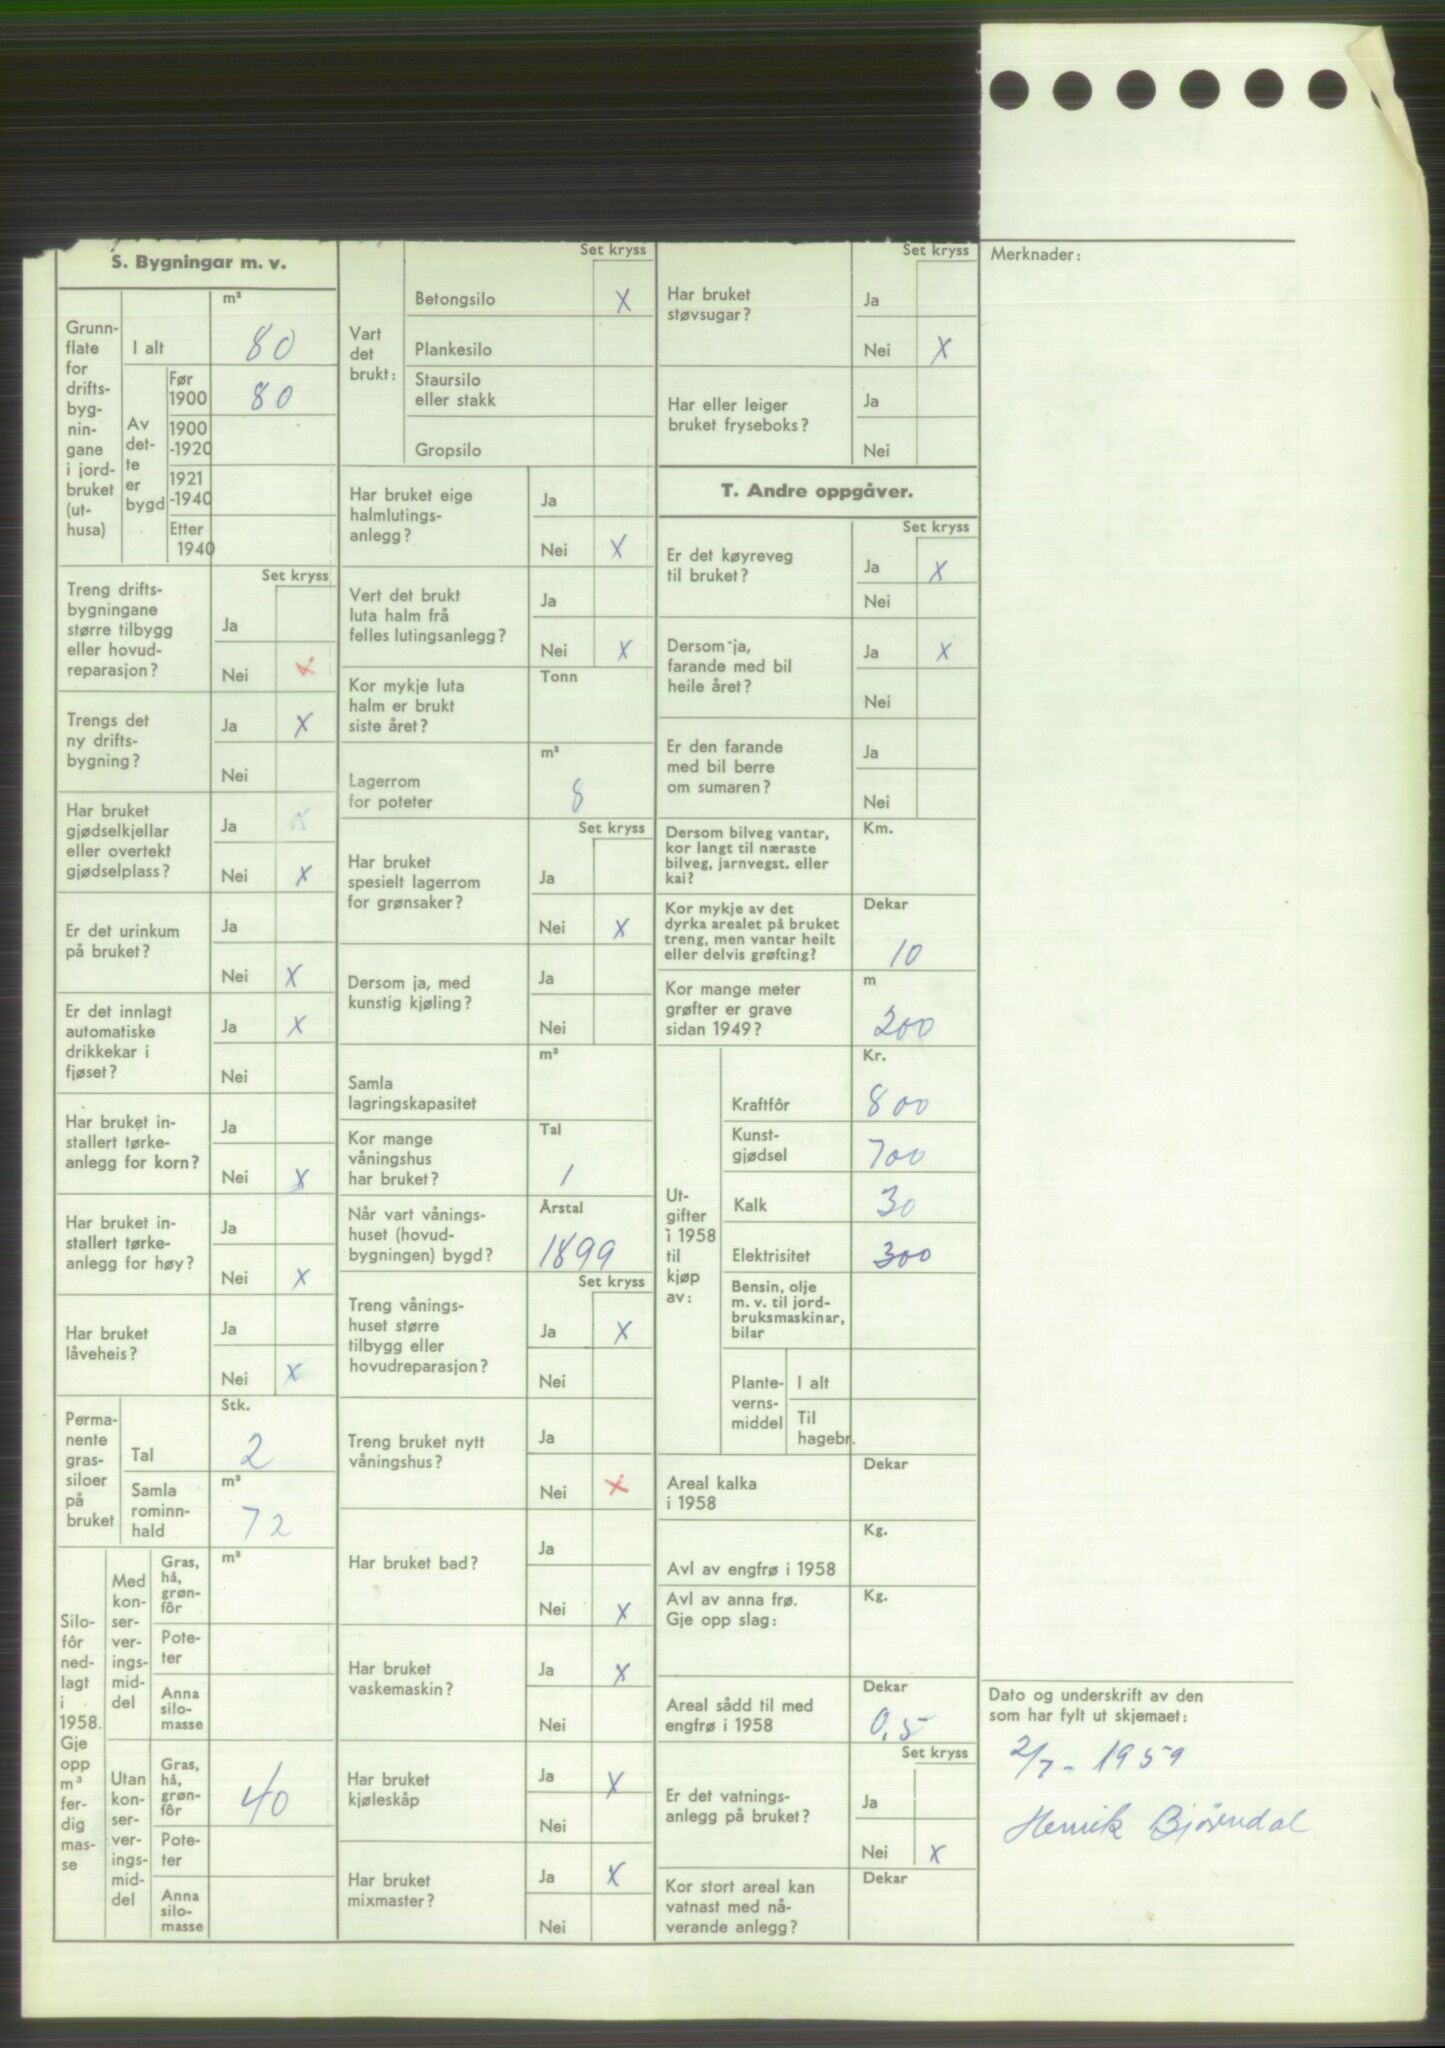 S. Bygningar m. v.
Grunn-
flate
for
drifts-
byg-
nin-
gane
i jord-
bruket
(ut-
husa)
m²
I alt 80
Av
det-
te
er
bygd
Før
1900 80
1900
-1920
1921
-1940
Etter
1940
Set kryss
Treng drifts-
bygningane
større tilbygg
eller hovud-
reparasjon?
Ja
Nei x
Trengs det
ny drifts-
bygning?
Ja x
Nei
Har bruket
gjødselkjellar
eller overtekt
gjødselplass?
Ja
Nei x
Er det urinkum
på bruket?
Ja
Nei x
Er det innlagt
automatiske
drikkekar i
fjøset?
Ja x
Nei
Har bruket in-
stallert tørke-
anlegg for korn?
Ja
Nei x
Har bruket in-
stallert tørke-
anlegg for høy?
Ja
Nei x
Har bruket
låveheis?
Ja
Nei x
Perma-
nente
gras-
siloer
på
bruket
Stk.
Tal 2
m³
Samla
rominn-
hald 72
Silo-
fôr
ned-
lagt
i
1958.
Gje
opp
m³
fer-
dig
mas-
se
Med
kon-
ser-
ver-
ings-
mid-
del
m³
Gras,
hå,
grøn-
fôr
Pote-
ter
Anna
silo-
masse
Utan
kon-
ser-
ver-
ings-
mid-
del
Gras,
hå,
grøn-
fôr 40
Pote-
ter
Anna
silo-
masse
Set kryss
Vart
det
brukt:
Betongsilo x
Plankesilo
Staursilo
eller stakk
Gropsilo
Har bruket eige
halmlutings-
anlegg?
Ja
Nei x
Vert det brukt
luta halm frå
felles lutingsanlegg?
Ja
Nei x
Kor mykje luta
halm er brukt
siste året?
Tonn
Lagerrom
for poteter
m³
8
Set kryss
Har bruket
spesielt lagerrom
for grønsaker?
Ja
Nei x
Dersom ja, med
kunstig kjøling?
Ja
Nei
Samla
lagringskapasitet
m³
Kor mange
våningshus
har bruket?
Tal
1
Når vart vånings-
huset (hovud-
bygningen) bygd?
Årstal
1899
Set kryss
Treng vånings-
huset større
tilbygg eller
hovudreparasjon?
Ja x
Nei
Treng bruket nytt
våningshus?
Ja
Nei x
Har bruket bad?
Ja
Nei x
Har bruket
vaskemaskin?
Ja x
Nei
Har bruket
kjøleskåp
Ja x
Nei
Har bruket
mixmaster?
Ja x
Nei
Set kryss
Har bruket
støvsugar?
Ja
Nei x
Har eller leiger
bruket fryseboks?
Ja
Nei
T. Andre oppgåver.
Set kryss
Er det køyreveg
til bruket?
Ja x
Nei
Dersom ja,
farande med bil
heile året?
Ja x
Nei
Er den farande
med bil berre
om sumaren?
Ja
Nei
Dersom bilveg vantar,
kor langt til næraste
bilveg, jarnvegst. eller
kai?
Km.
Kor mykje av det
dyrka arealet på bruket
treng, men vantar heilt
eller delvis grøfting?
Dekar
10
Kor mange meter
grøfter er grave
sidan 1949?
m
200
Ut-
gifter
i 1958
til
kjøp
av:
Kr.
Kraftfôr 800
Kunst-
gjødsel 700
Kalk 30
Elektrisitet 300
Bensin, olje
m. v. til jord-
bruksmaskinar,
bilar
Plante-
verns-
middel
I alt
Til
hagebr.
Areal kalka
i 1958
Dekar
Avl av engfrø i 1958
Kg.
Avl av anna frø.
Gje opp slag:
Kg.
Areal sådd til med
engfrø i 1958
Dekar
0,5
Set kryss
Er det vatnings-
anlegg på bruket?
Ja
Nei x
Kor stort areal kan
vatnast med nå-
verande anlegg?
Dekar
Merknader:
Dato og underskrift av den
som har fylt ut skjemaet:
2/7 - 1959
Henrik Bjørndal